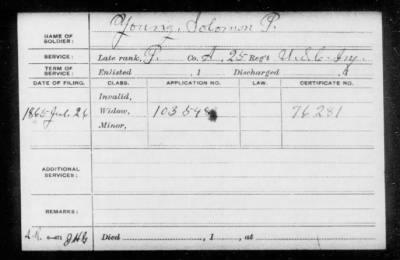 NAME OF SOLDIER: Young, Solomon P.
SERVICE: Late rank, P. Co. A, 25 Reg't U.S.C. Inf.
TERM OF SERVICE: Enlisted , 1 Discharged , 1
DATE OF FILING. CLASS. APPLICATION NO. LAW. CERTIFICATE NO.
Invalid,
1865 Jul. 26 Widow, 103 548 76 281
Minor,
ADDITIONAL SERVICES:
REMARKS:
Died , 1 , at